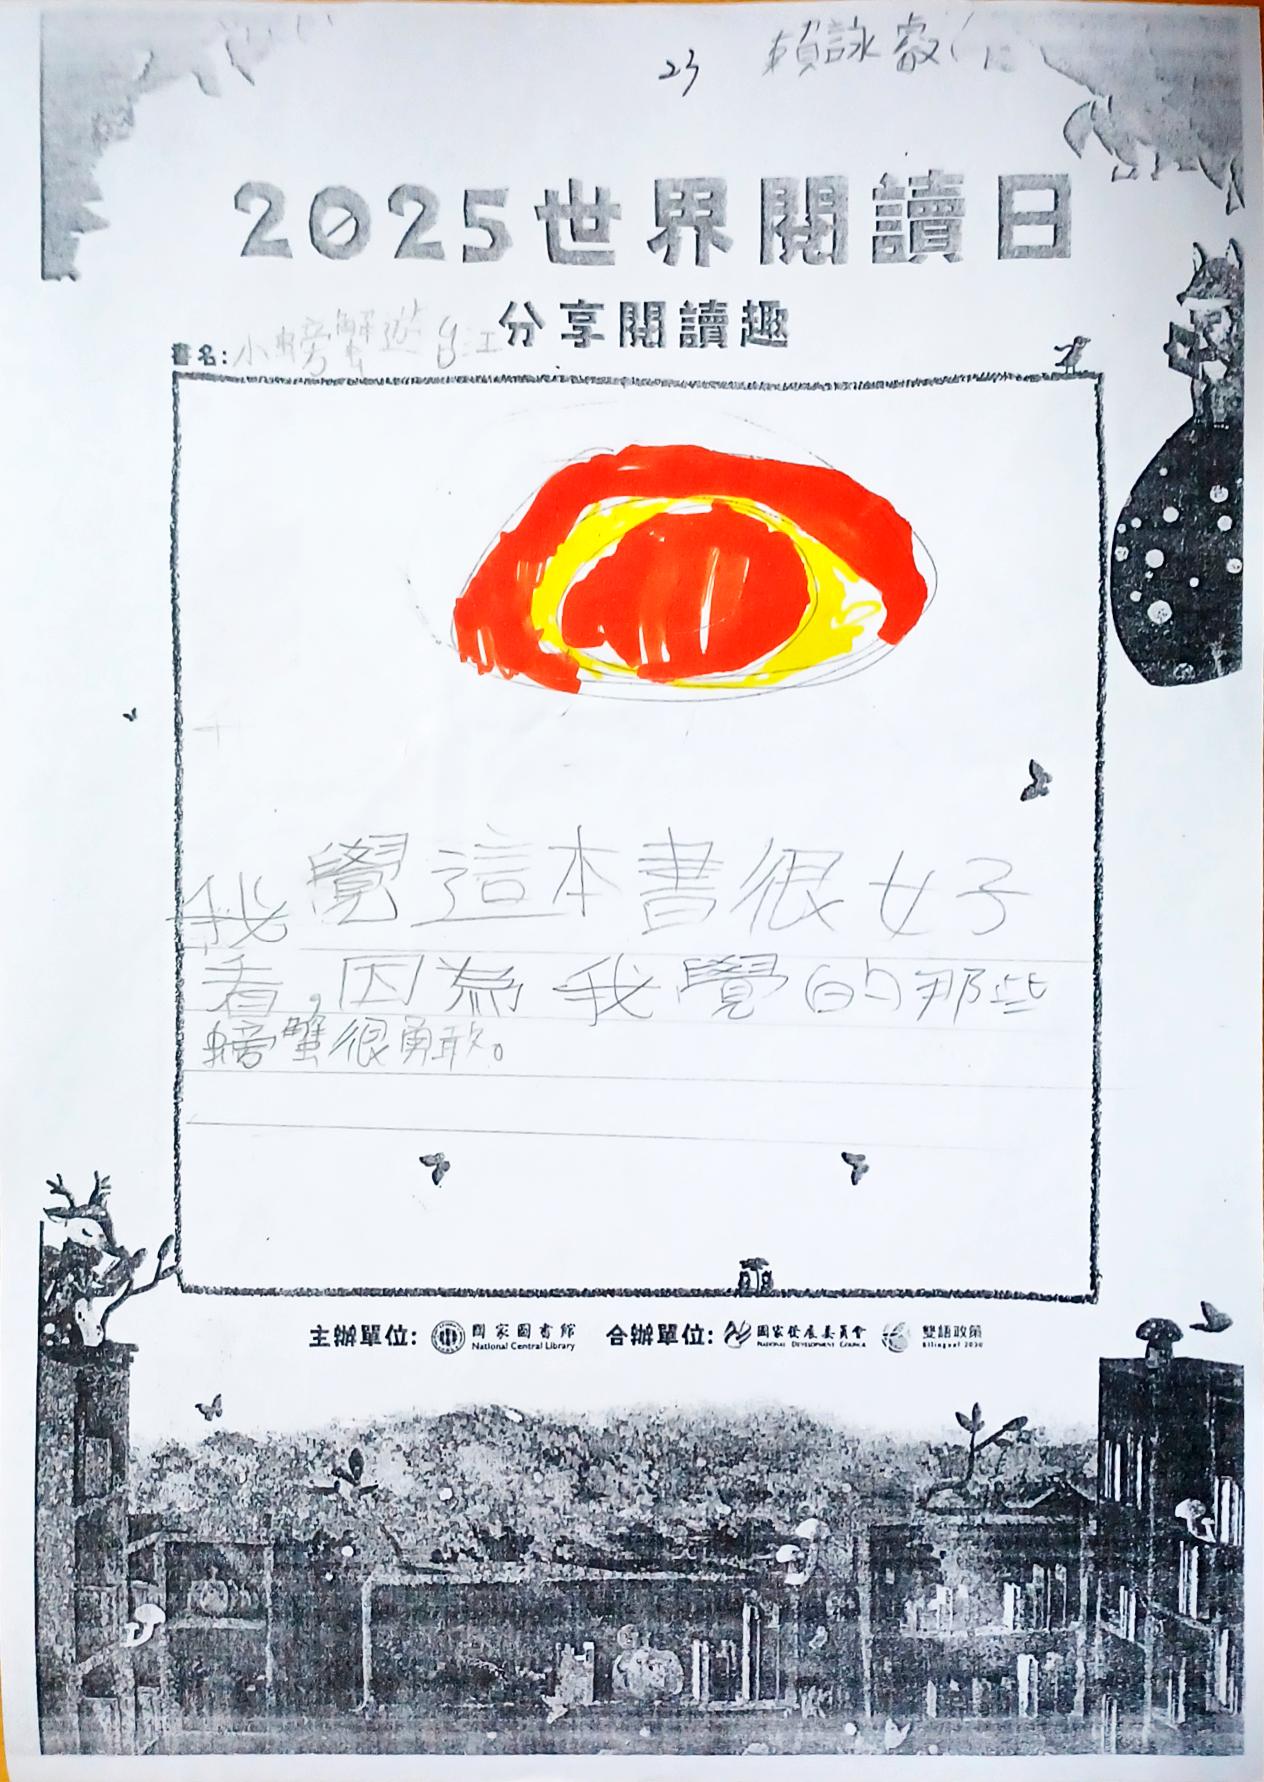 23 賴詠睿
2025世界閱讀日
分享閱讀趣
書名:小螃蟹遊台江
我覺這本書很好
看,因為我覺的那些
螃蟹很勇敢。
主辦單位: 國家圖書館 National Central Library 合辦單位: 國家發展委員會 National Development Council 雙語政策 Bilingual 2030